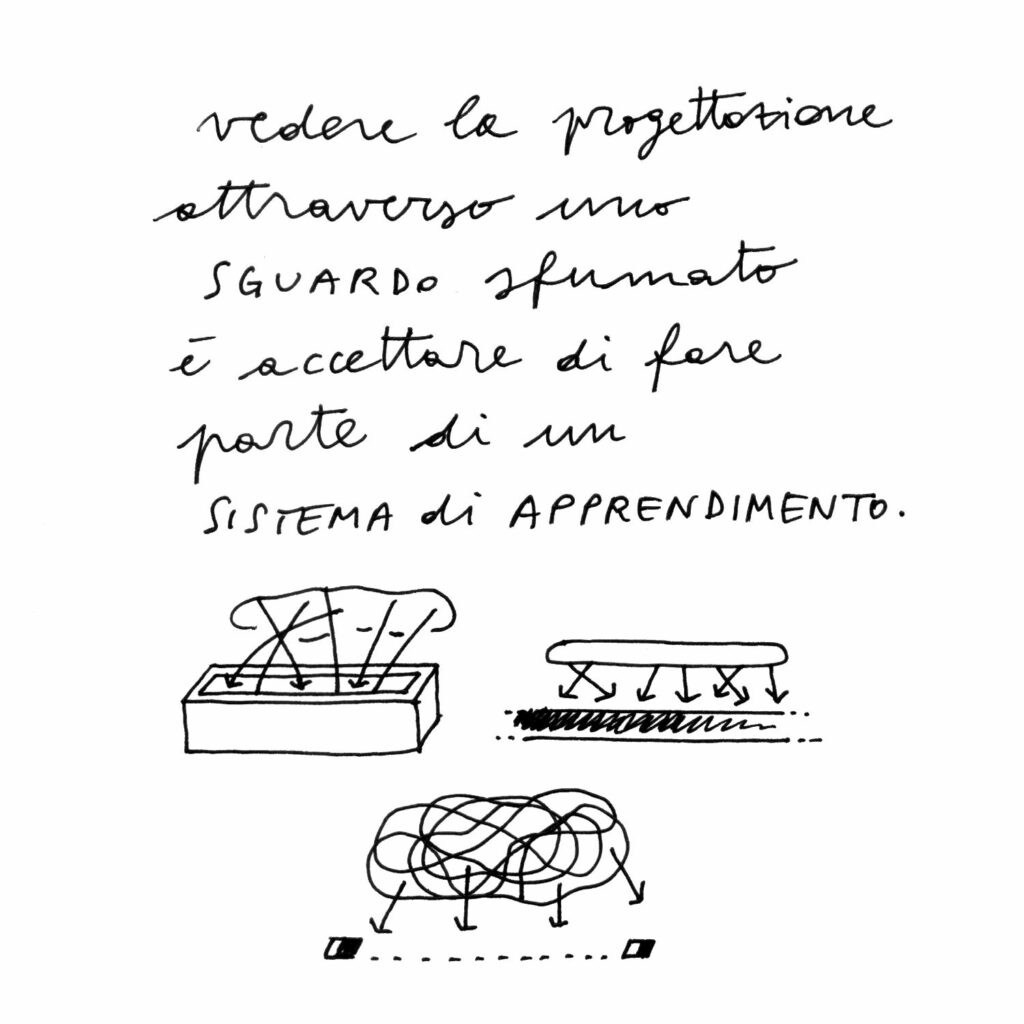 vedere la progettazione
attraverso uno
SGUARDO sfumato
è accettare di fare
parte di un
SISTEMA di APPRENDIMENTO.